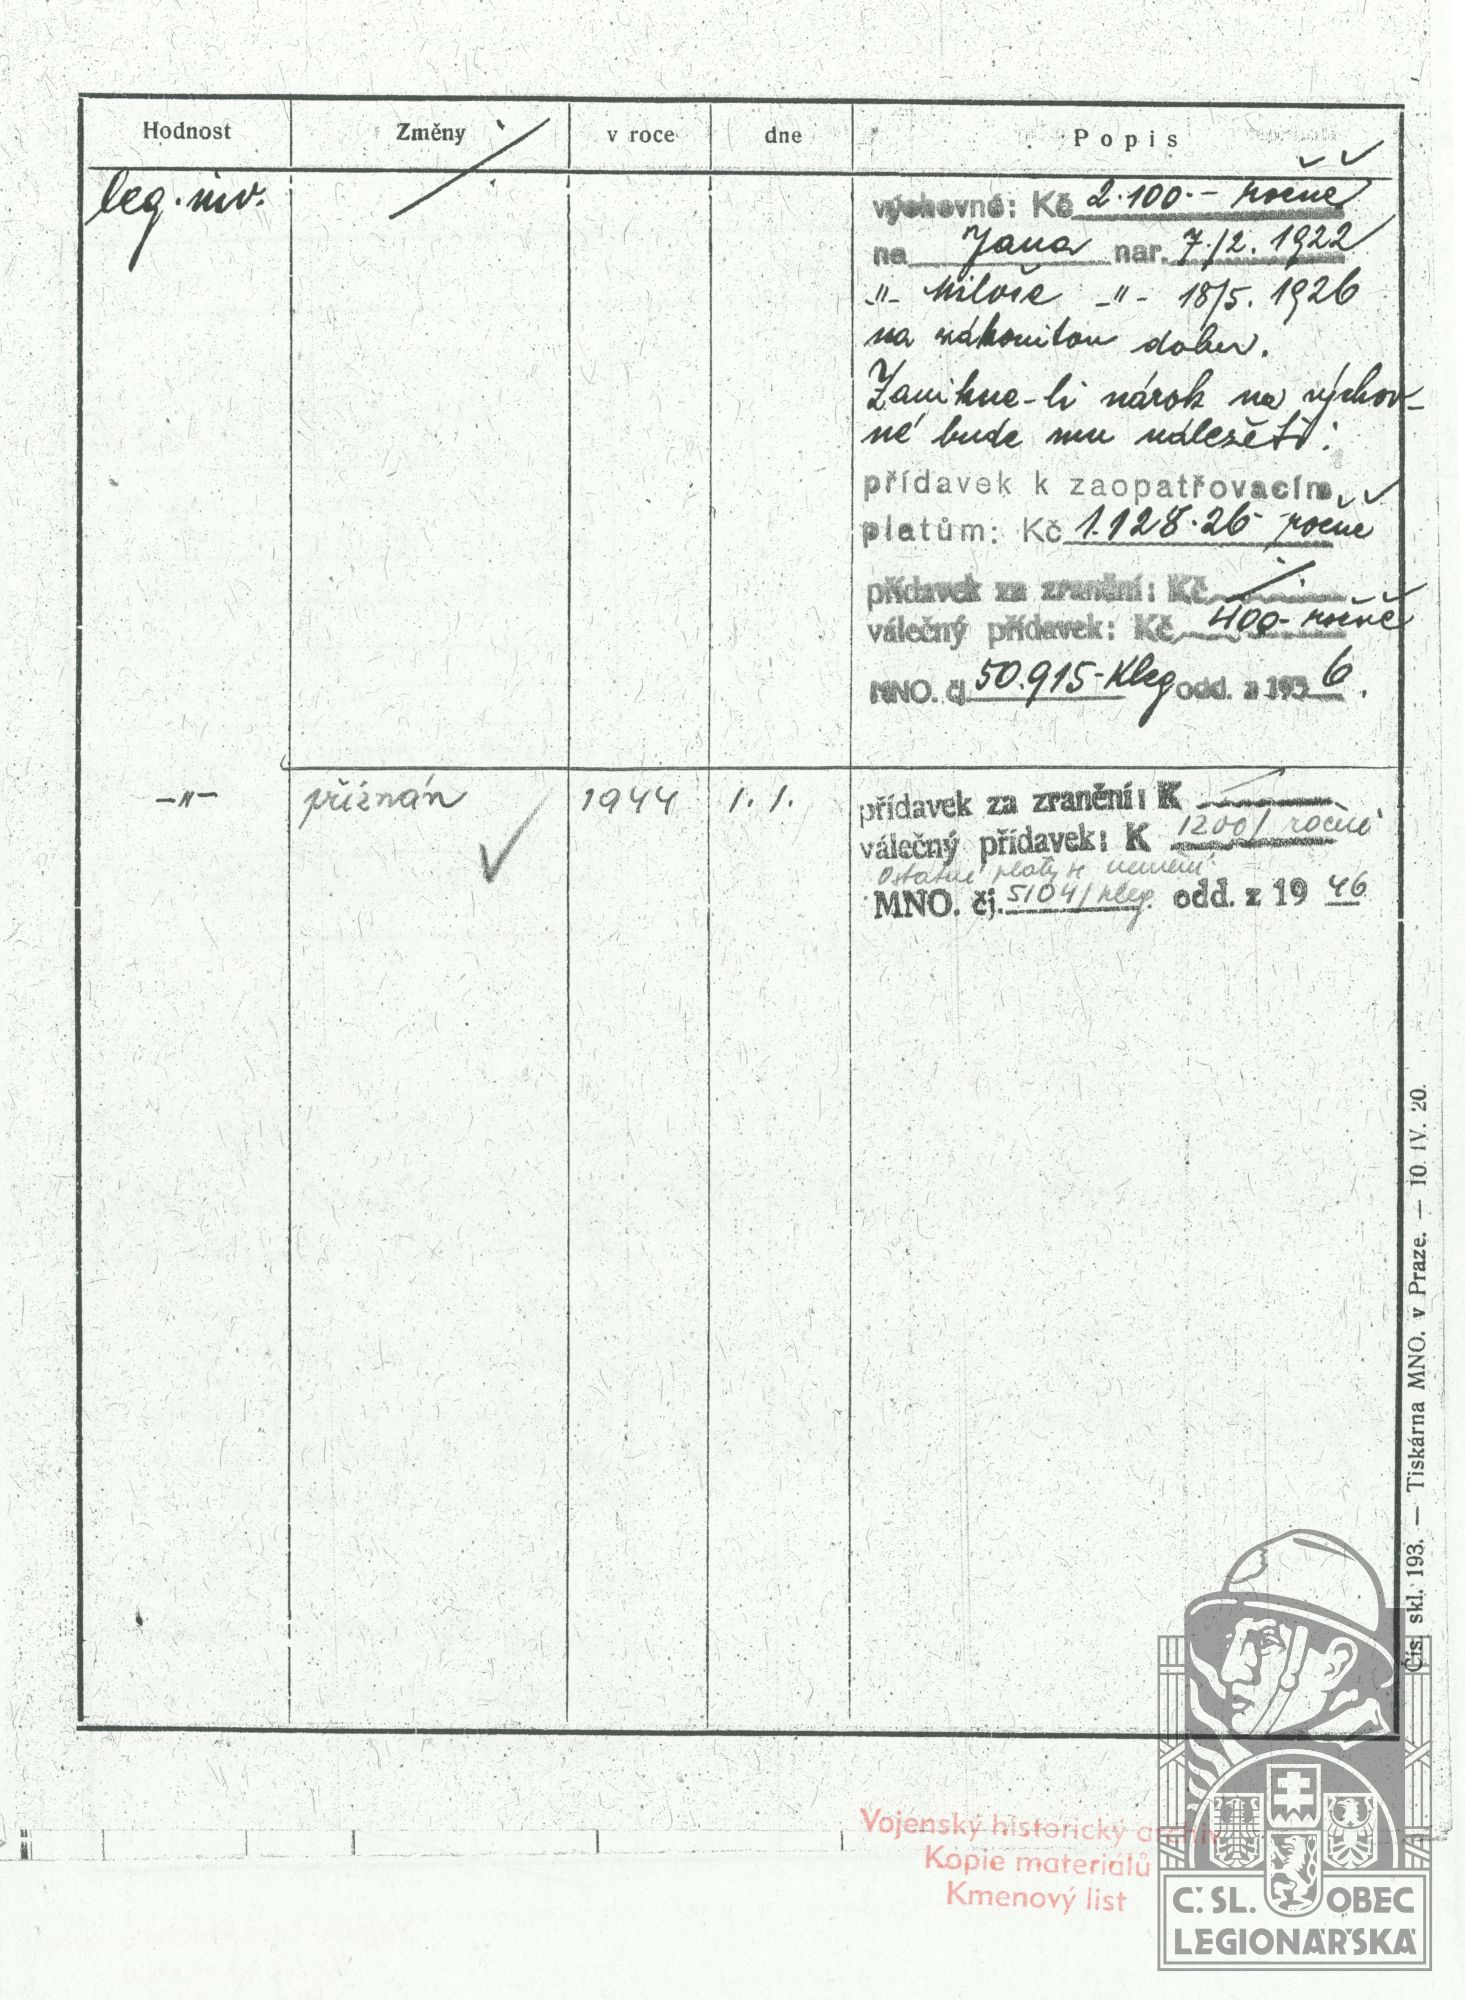 Hodnost Změny v roce dne Popis
leg. inv.
výchovné: Kč 2.100.- ročně
na Jana nar. 7./2. 1922
-"- Miloše -"- 18/5. 1926
na zákonitou dobu.
Zanikne-li nárok na výchov-
né bude mu náležeti:
přídavek k zaopatřovacím
platům: Kč 1.128.26 ročně
přídavek za zranění: Kč
válečný přídavek: Kč 400.- ročně
MNO. čj. 50.915-Kleg odd. z 1936.
-"- přiznán 1944 1. 1. přídavek za zranění: K
válečný přídavek: K 1200/ ročně
Ostatní platy se nemění.
MNO. čj. 5104/kleg. odd. z 1946
Čís. skl. 193. — Tiskárna MNO. v Praze. — 10. IV. 20.
Vojenský historický archiv
Kopie materiálů
Kmenový list
Č. SL. OBEC
LEGIONÁŘSKÁ